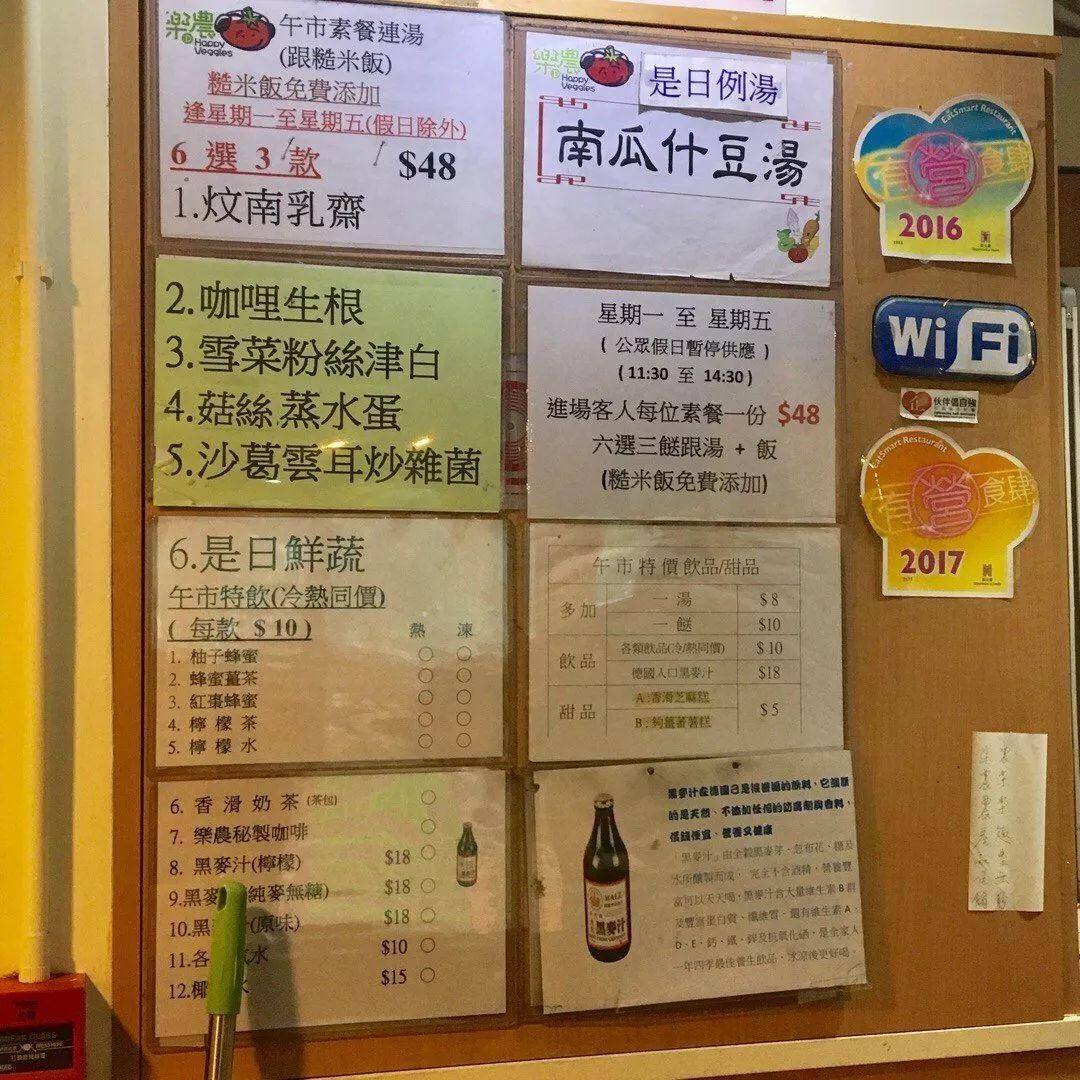 樂農
Happy Veggies
午市素餐連湯
(跟糙米飯)
糙米飯免費添加
逢星期一至星期五(假日除外)
6 選 3 款 $48
1.炆南乳齋
2.咖哩生根
3.雪菜粉絲津白
4.菇絲蒸水蛋
5.沙葛雲耳炒雜菌
6.是日鮮蔬
午市特飲(冷熱同價)
( 每款 $10 )
熱 凍
1. 柚子蜂蜜
2. 蜂蜜薑茶
3. 紅棗蜂蜜
4. 檸檬茶
5. 檸檬水
6. 香滑奶茶(茶包)
7. 樂農秘製咖啡
8. 黑麥汁(檸檬) $18
9.黑麥 純麥無糖) $18
10.黑 汁(原味) $18
11.各 水 $10
12.椰 $15
樂農
Happy Veggies
是日例湯
南瓜什豆湯
星期一 至 星期五
( 公眾假日暫停供應 )
( 11:30 至 14:30 )
進場客人每位素餐一份 $48
六選三餸跟湯 + 飯
(糙米飯免費添加)
午市特價飲品/甜品
多加 一湯 $8
一餸 $10
飲品 各類飲品(冷/熱同價) $10
德國入口黑麥汁 $18
甜品 A:香滑芝麻糕 $5
B:夠薑蕃薯糕
黑麥汁在德國已是很普遍的飲料、它強調
的是天然、不添加任何的防腐劑與香料，
價錢便宜、營養又健康
「黑麥汁」由全穀黑麥芽、忽布花、糖及
水所釀製而成， 完全不含酒精，營養豐
富可以天天喝，黑麥汁含大量維生素 B 群
及豐富蛋白質、纖維質、還有維生素 A、
D、E、鈣、鐵、鋅及抗氧化硒，是全家人
一年四季最佳養生飲品，冰涼後更好喝。
黑麥汁
EatSmart Restaurant
有營食肆
2016
Wi Fi
伙伴倡自強
EatSmart Restaurant
有營食肆
2017